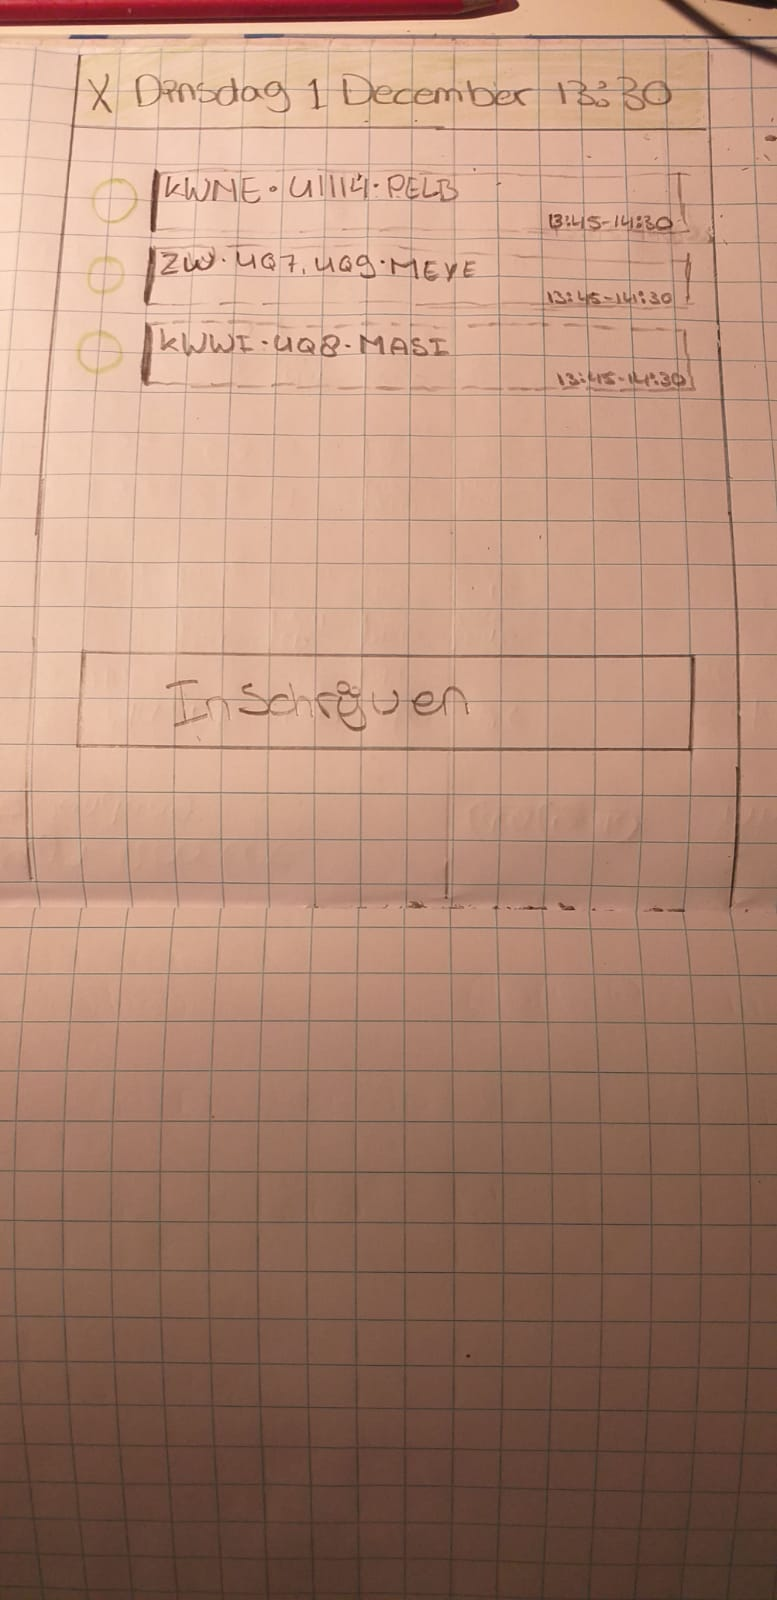 X Dinsdag 1 December 13:30
KWNE · U1114 · PELB
13:45-14:30
ZW · UQ7, UQ9 · MEYE
13:45-14:30
KWWI · UQ8 · MASI
13:45-14:30
Inschrijven